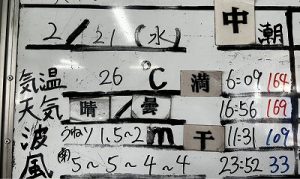 2/21(水) 中潮
気温 26 ℃ 満 6:09 164
天気 晴/曇 16:56 169
波 うねり 1.5~2m 干 11:31 109
風 5~5~4~4 23:52 33